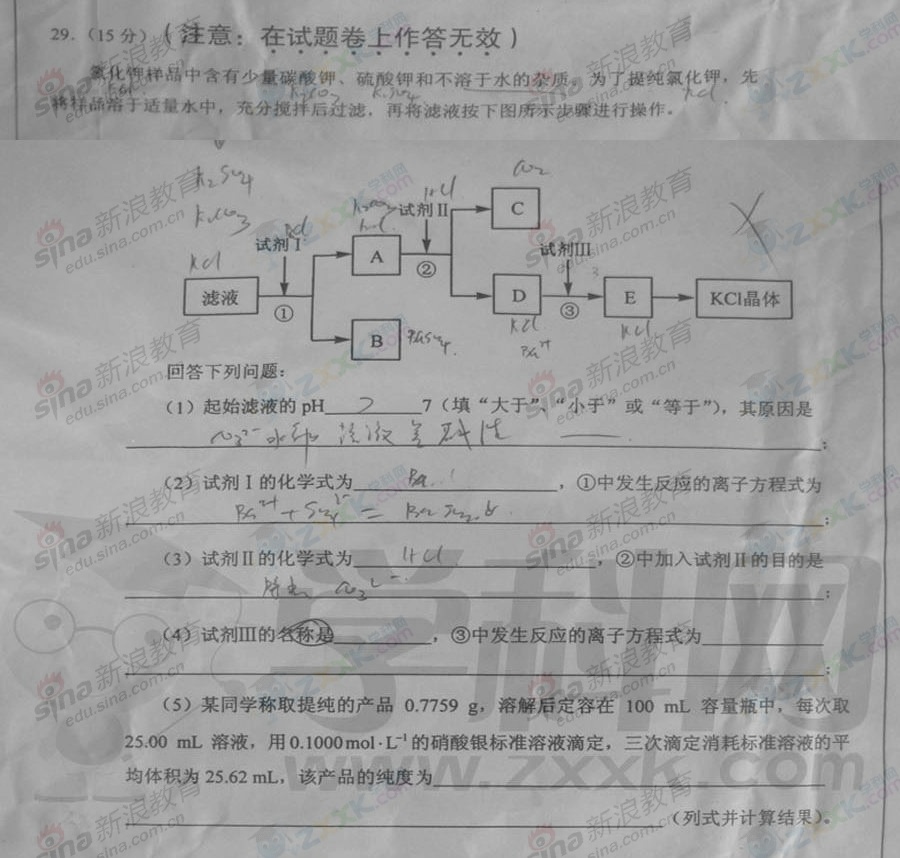 29.（15分）（注意：在试题卷上作答无效）
氯化钾样品中含有少量碳酸钾、硫酸钾和不溶于水的杂质。为了提纯氯化钾，先
将样品溶于适量水中，充分搅拌后过滤，再将滤液按下图所示步骤进行操作。
K₂SO₄
K₂CO₃
KCl
CO₂
HCl
试剂Ⅰ
试剂Ⅱ
试剂Ⅲ
滤液
①
A
B
BaSO₄
②
C
D
KCl
Ba²⁺
③
E
KCl
KCl晶体
回答下列问题：
（1）起始滤液的pH > 7（填“大于”、“小于”或“等于”），其原因是
CO₃²⁻水解 溶液呈碱性；
（2）试剂Ⅰ的化学式为，①中发生反应的离子方程式为
；
（3）试剂Ⅱ的化学式为 HCl，②中加入试剂Ⅱ的目的是
CO₃²⁻；
（4）试剂Ⅲ的名称是，③中发生反应的离子方程式为
；
（5）某同学称取提纯的产品 0.7759 g，溶解后定容在 100 mL 容量瓶中，每次取
25.00 mL 溶液，用0.1000 mol·L⁻¹的硝酸银标准溶液滴定，三次滴定消耗标准溶液的平
均体积为 25.62 mL，该产品的纯度为
（列式并计算结果）。
sina新浪教育
edu.sina.com.cn
学科网
www.zxxk.com